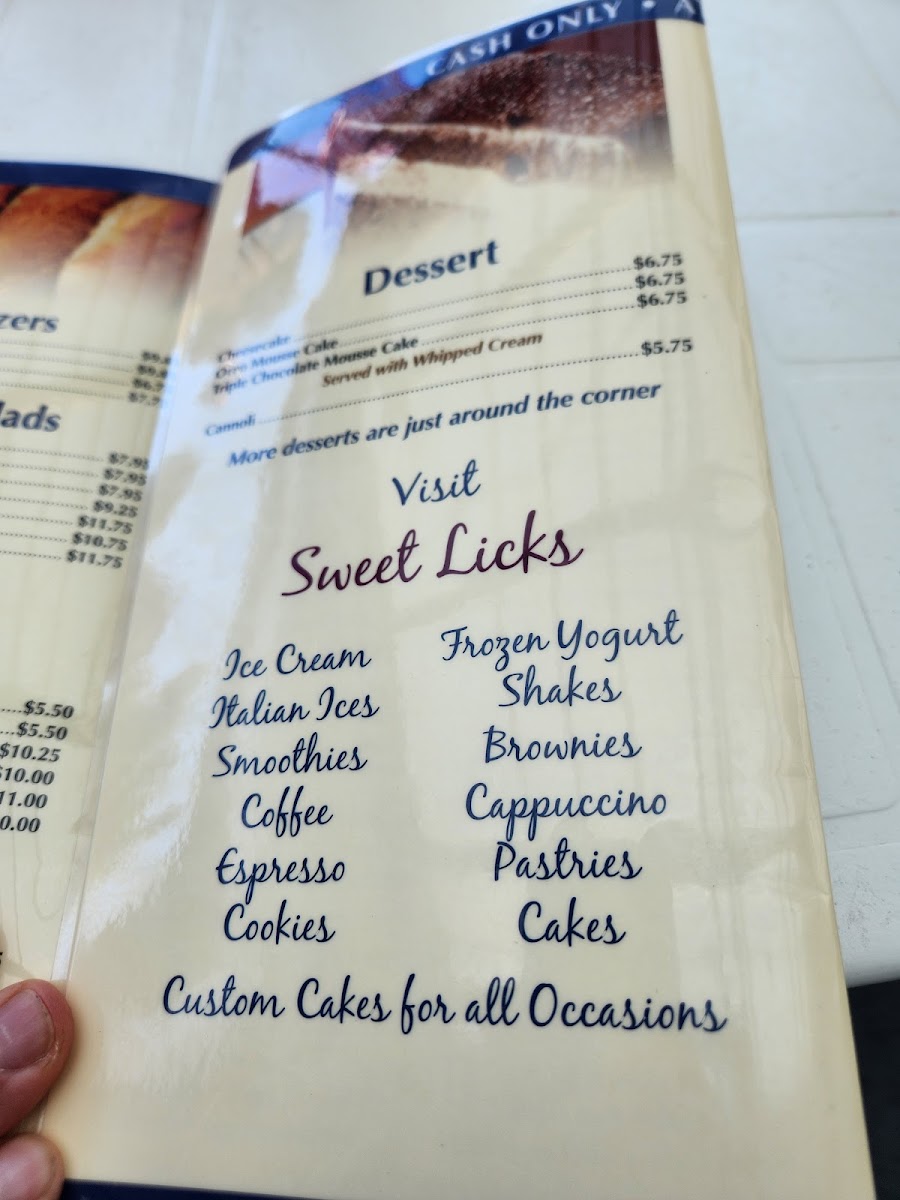 CASH ONLY • A
zers
lads
$7.95
$7.95
$7.95
$9.25
$11.75
$10.75
$11.75
$5.50
$5.50
$10.25
10.00
11.00
0.00
Dessert
Cheesecake $6.75
Oreo Mousse Cake $6.75
Triple Chocolate Mousse Cake $6.75
Served with Whipped Cream
Cannoli $5.75
More desserts are just around the corner
Visit
Sweet Licks
Ice Cream Frozen Yogurt
Italian Ices Shakes
Smoothies Brownies
Coffee Cappuccino
Espresso Pastries
Cookies Cakes
Custom Cakes for all Occasions